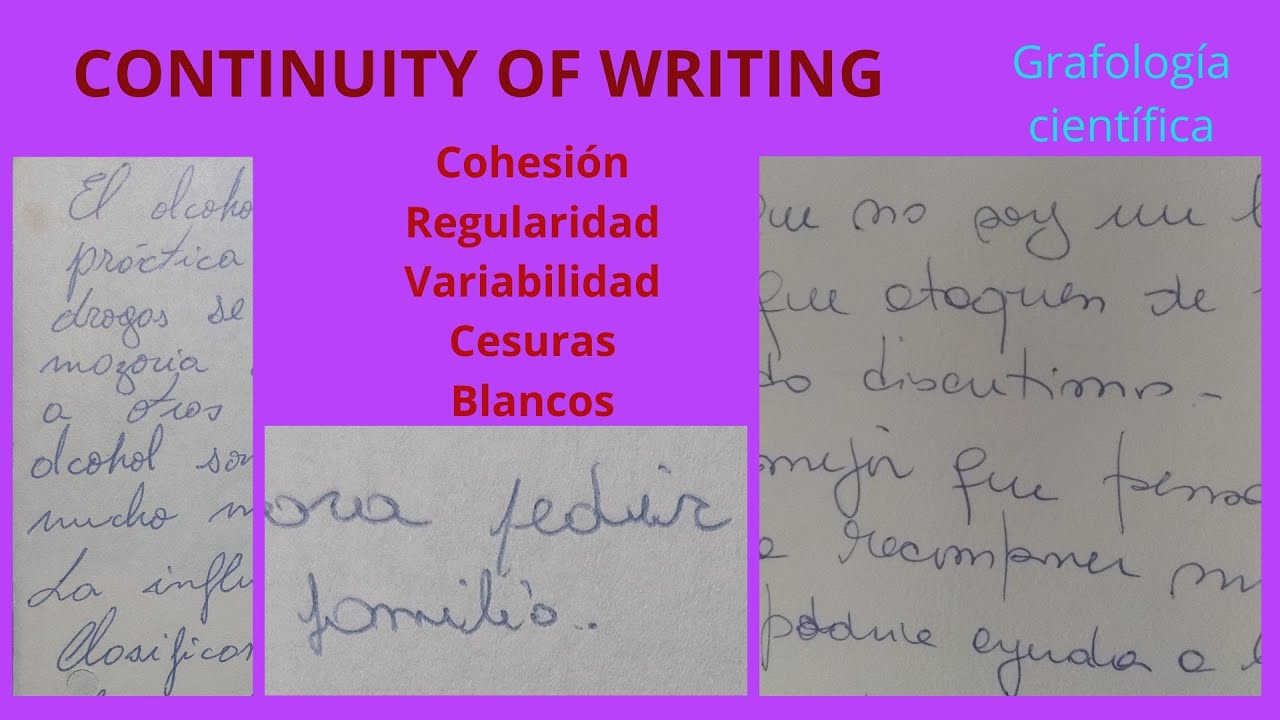 CONTINUITY OF WRITING
Grafología
científica
Cohesión
Regularidad
Variabilidad
Cesuras
Blancos
El alcoho
práctica
drogas se
mayoría
a otros
alcohol son
mucho m
La influ
Clasificas
ora pedir
familia..
que no soy un
que ataquen de
do discutimos.-
mejor que pensa
a recomponer m
ayuda a